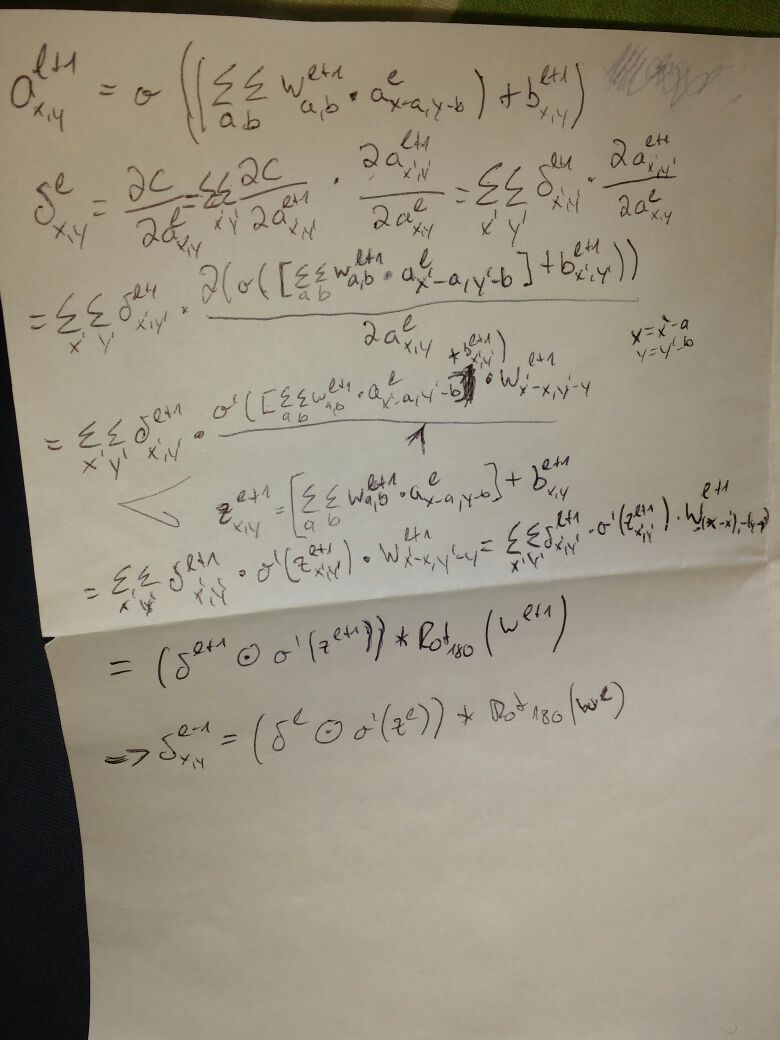 a^{l+1}_{x,y} = σ ( ( Σ_a Σ_b w^{l+1}_{a,b} · a^l_{x-a,y-b} ) + b^{l+1}_{x,y} )
δ^l_{x,y} = ∂C / ∂a^l_{x,y} = Σ_{x'} Σ_{y'} ∂C / ∂a^{l+1}_{x',y'} · ∂a^{l+1}_{x',y'} / ∂a^l_{x,y} = Σ_{x'} Σ_{y'} δ^{l+1}_{x',y'} · ∂a^{l+1}_{x',y'} / ∂a^l_{x,y}
= Σ_{x'} Σ_{y'} δ^{l+1}_{x',y'} · ∂(σ([Σ_a Σ_b w^{l+1}_{a,b} · a^l_{x'-a,y'-b}] + b^{l+1}_{x',y'})) / ∂a^l_{x,y}
x = x'-a
y = y'-b
= Σ_{x'} Σ_{y'} δ^{l+1}_{x',y'} · σ'([Σ_a Σ_b w^{l+1}_{a,b} · a^l_{x'-a,y'-b}] + b^{l+1}_{x',y'}) · w^{l+1}_{x'-x,y'-y} / 1
z^{l+1}_{x,y} = [Σ_a Σ_b w^{l+1}_{a,b} · a^l_{x-a,y-b}] + b^{l+1}_{x,y}
= Σ_{x'} Σ_{y'} δ^{l+1}_{x',y'} · σ'(z^{l+1}_{x',y'}) · w^{l+1}_{x'-x,y'-y} = Σ_{x'} Σ_{y'} δ^{l+1}_{x',y'} · σ'(z^{l+1}_{x',y'}) · w^{l+1}_{-(x-x'),-(y-y')}
= (δ^{l+1} ⊙ σ'(z^{l+1})) * Rot_{180} (w^{l+1})
=> δ^{l-1}_{x,y} = (δ^l ⊙ σ'(z^l)) * Rot_{180} (w^l)